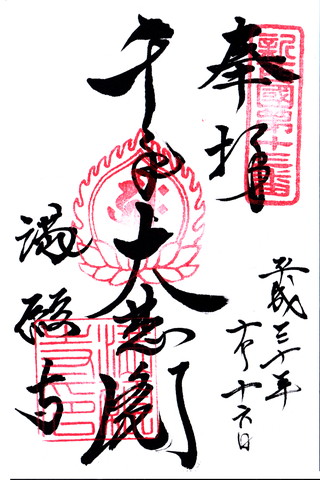 新西國第十三番
奉拝
平成三十年
六月十六日
千手大悲閣
満願寺